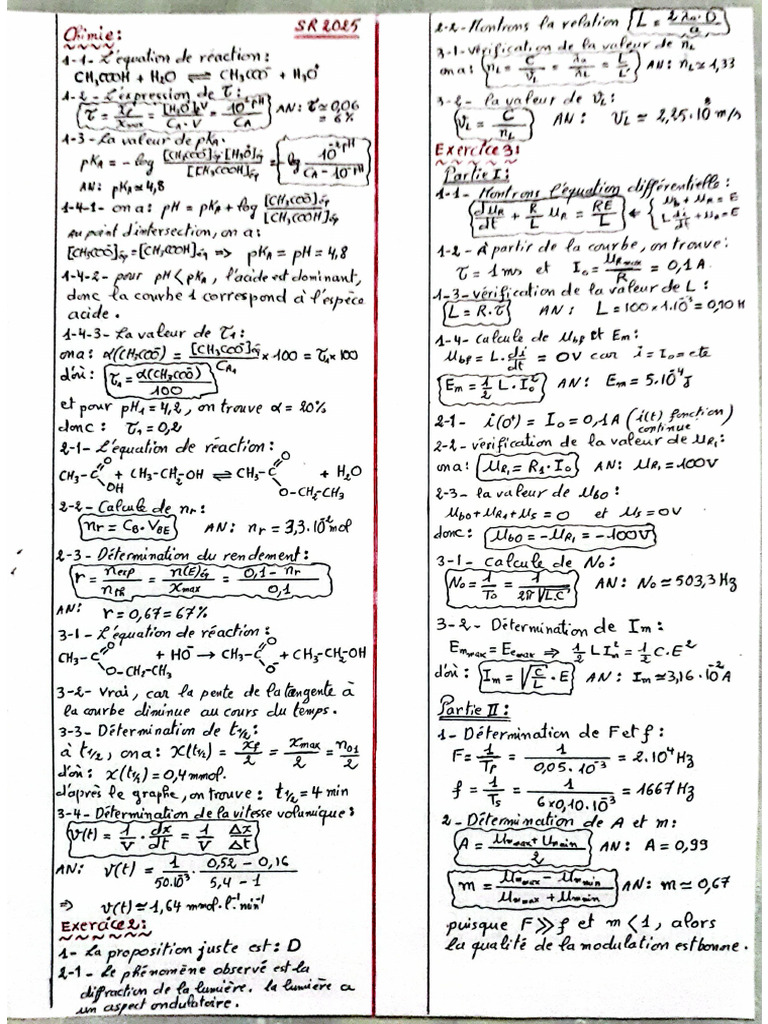 Chimie: SR 2025
1-1- L'équation de réaction:
CH₃COOH + H₂O ⇌ CH₃COO⁻ + H₃O⁺
1-2- L'expression de τ:
τ = xf/xmax = [H₃O⁺].V/CA.V = 10^-pH/CA AN: τ ≃ 0,06 = 6%
1-3- La valeur de pKA:
pKA = -log [CH₃COO⁻]éq.[H₃O⁺]éq/[CH₃COOH]éq = -log 10^-2pH/(CA - 10^-pH)
AN: pKA ≃ 4,8
1-4-1- on a: pH = pKA + log [CH₃COO⁻]éq/[CH₃COOH]éq
Au point d'intersection, on a:
[CH₃COO⁻]éq = [CH₃COOH]éq ⇒ pKA = pH = 4,8
1-4-2- pour pH < pKA, l'acide est dominant,
donc la courbe 1 correspond à l'espèce
acide.
1-4-3- La valeur de τ₁:
on a: α(CH₃COO⁻) = [CH₃COO⁻]éq/CA₁ × 100 = τ₁ × 100
d'où: τ₁ = α(CH₃COO⁻)/100
et pour pH₁ = 4,2, on trouve α = 20%
donc: τ₁ = 0,2
2-1- L'équation de réaction:
CH₃-C(=O)-OH + CH₃-CH₂-OH ⇌ CH₃-C(=O)-O-CH₂-CH₃ + H₂O
2-2- Calcule de nr:
nr = CB.VBE AN: nr = 3,3.10⁻² mol
2-3- Détermination du rendement:
r = nexp/nth = n(E)éq/xmax = (0,1 - nr)/0,1
AN: r = 0,67 = 67%
3-1- L'équation de réaction:
CH₃-C(=O)-O-CH₂-CH₃ + HO⁻ → CH₃-C(=O)-O⁻ + CH₃-CH₂-OH
3-2- Vrai, car la pente de la tangente à
la courbe diminue au cours du temps.
3-3- Détermination de t1/2:
à t1/2, on a: x(t1/2) = xf/2 = xmax/2 = n01/2
d'où: x(t1/2) = 0,4 mmol.
d'après le graphe, on trouve: t1/2 = 4 min
3-4- Détermination de la vitesse volumique:
v(t) = 1/V . dx/dt = 1/V Δx/Δt
AN: v(t) = 1/50.10⁻³ . (0,52 - 0,16)/(5,4 - 1)
⇒ v(t) ≃ 1,64 mmol.l⁻¹.min⁻¹
Exercice 2:
1- La proposition juste est: D
2-1- Le phénomène observé est la
diffraction de la lumière. la lumière a
un aspect ondulatoire.
2-2- Montrons la relation L = 2λ₀.D/a
3-1- vérification de la valeur de nL
on a: nL = C/VL = λ₀/λL = L/L' AN: nL ≃ 1,33
3-2- la valeur de VL:
VL = C/nL AN: VL ≃ 2,25.10⁸ m/s
Exercice 3:
Partie I:
1-1- Montrons l'équation différentielle:
duR/dt + R/L uR = RE/L ⇐ { ub + uR = E
L di/dt + uR = E
1-2- À partir de la courbe, on trouve:
τ = 1 ms et I₀ = uRmax/R = 0,1 A.
1-3- vérification de la valeur de L:
L = R.τ AN: L = 100×1.10⁻³ = 0,10 H
1-4- Calcule de ubp et Em:
ubp = L.di/dt = 0V car i = I₀ = cte
Em = 1/2 L.I₀² AN: Em = 5.10⁻⁴ J
2-1- i(0⁺) = I₀ = 0,1 A (i(t) fonction
continue
2-2- vérification de la valeur de uR₁:
on a: uR₁ = R₁.I₀ AN: uR₁ = 100V
2-3- la valeur de ub0:
ub0 + uR1 + uS = 0 et uS = 0V
donc: ub0 = -uR₁ = -100V
3-1- Calcule de N₀:
N₀ = 1/T₀ = 1/2π√L.C AN: N₀ ≃ 503,3 Hz
3-2- Détermination de Im:
Em max = Ee max ⇒ 1/2 L Im² = 1/2 C.E²
d'où: Im = √C/L . E AN: Im ≃ 3,16.10⁻² A
Partie II:
1- Détermination de F et f:
F = 1/Tp = 1/0,05.10⁻³ = 2.10⁴ Hz
f = 1/Ts = 1/6×0,10.10⁻³ = 1667 Hz
2- Détermination de A et m:
A = (umax + umin)/2 AN: A = 0,99
m = (umax - umin)/(umax + umin) AN: m ≃ 0,67
puisque F ≫ f et m < 1, alors
la qualité de la modulation est bonne.